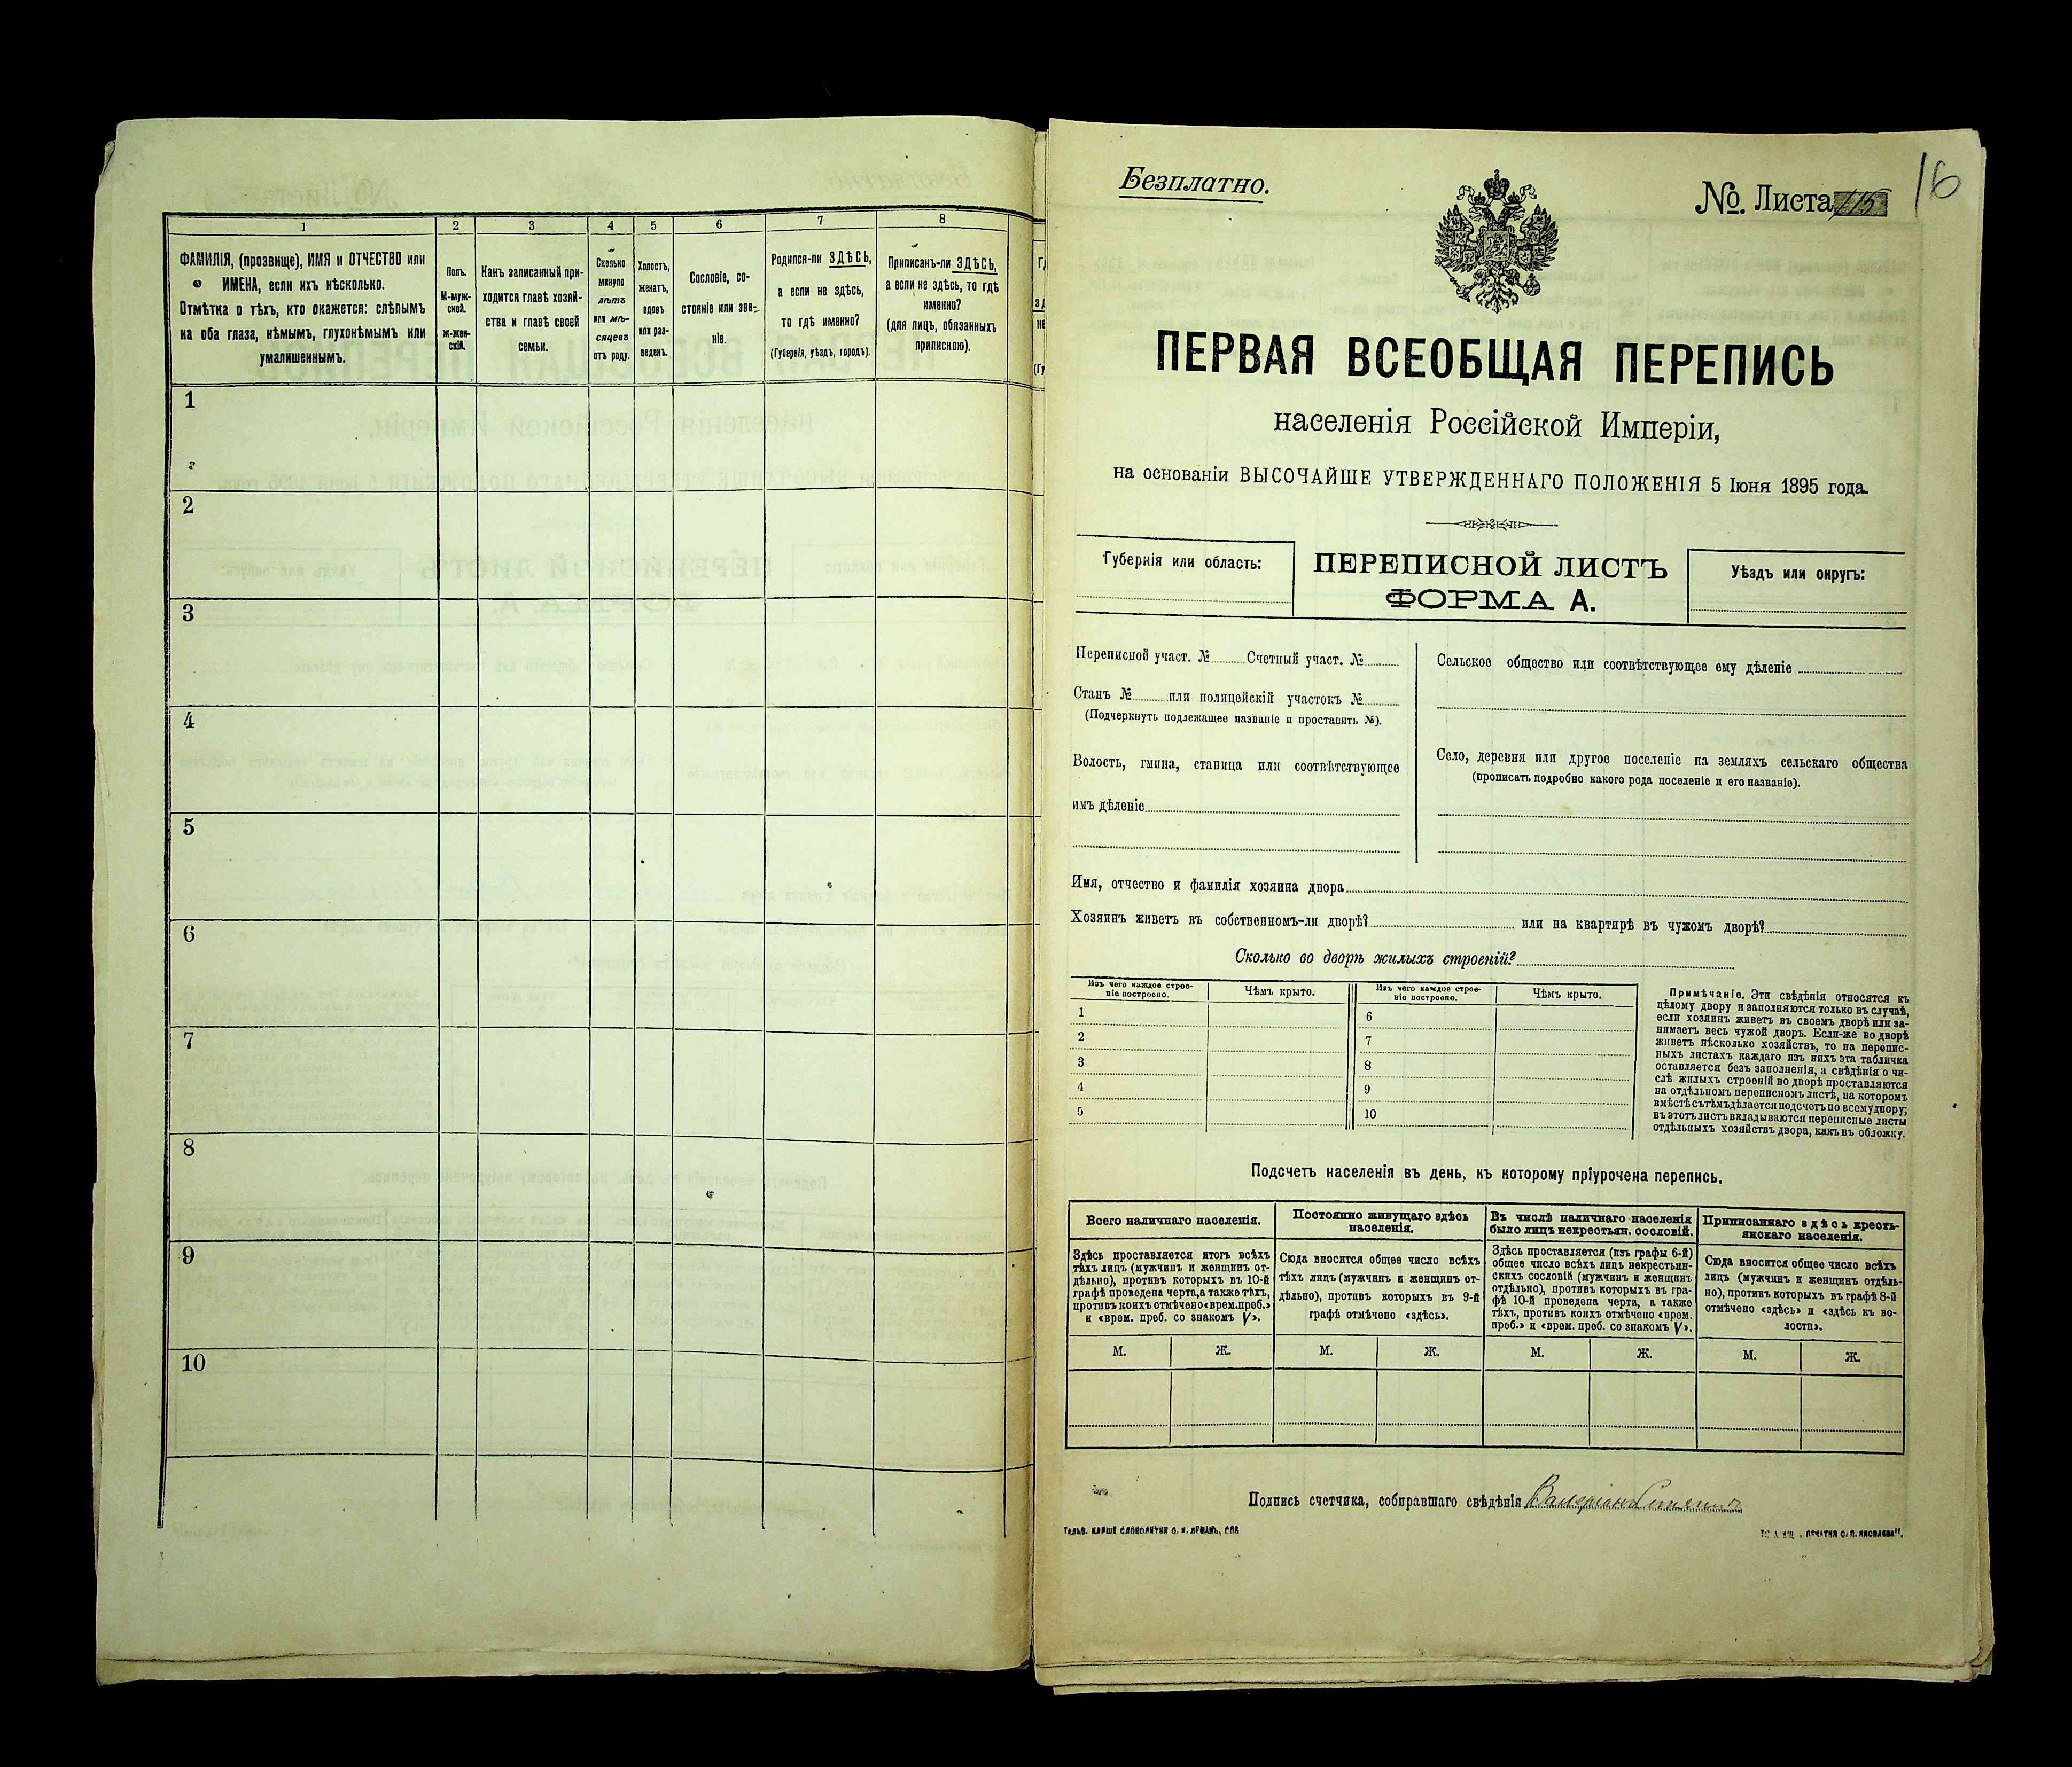 1 2 3 4 5 6 7 8
ФАМИЛІЯ, (прозвище), ИМЯ и ОТЧЕСТВО или
ИМЕНА, если ихъ нѣсколько.
Отмѣтка о тѣхъ, кто окажется: слѣпымъ
на оба глаза, нѣмымъ, глухонѣмымъ или
умалишеннымъ.
Полъ.
М-муж-
ской.
ж-жен-
скій.
Какъ записанный при-
ходится главѣ хозяй-
ства и главѣ своей
семьи.
Сколько
минуло
лѣтъ
или мѣ-
сяцевъ
отъ роду.
Холостъ,
женатъ,
вдовъ
или раз-
веденъ.
Сословіе, со-
стояніе или зва-
ніе.
Родился-ли ЗДѢСЬ,
а если не здѣсь,
то гдѣ именно?
(Губернія, уѣздъ, городъ).
Приписанъ-ли ЗДѢСЬ,
а если не здѣсь, то гдѣ
именно?
(для лицъ, обязанныхъ
припискою).
1
2
3
4
5
6
7
8
9
10
Безплатно.
№. Листа 115
16
ПЕРВАЯ ВСЕОБЩАЯ ПЕРЕПИСЬ
населенія Россійской Имперіи,
на основаніи ВЫСОЧАЙШЕ УТВЕРЖДЕННАГО ПОЛОЖЕНІЯ 5 Іюня 1895 года.
Губернія или область:
ПЕРЕПИСНОЙ ЛИСТЪ
ФОРМА А.
Уѣздъ или округъ:
Переписной участ. № Счетный участ. №
Станъ № или полицейскій участокъ №
(Подчеркнуть подлежащее названіе и проставить №).
Волость, гмина, станица или соотвѣтствующее
имъ дѣленіе
Сельское общество или соотвѣтствующее ему дѣленіе
Село, деревня или другое поселеніе на земляхъ сельскаго общества
(прописать подробно какого рода поселеніе и его названіе).
Имя, отчество и фамилія хозяина двора
Хозяинъ живетъ въ собственномъ-ли дворѣ? или на квартирѣ въ чужомъ дворѣ?
Сколько во дворѣ жилыхъ строеній?
Изъ чего каждое строе-
ніе построено.
Чѣмъ крыто.
Изъ чего каждое строе-
ніе построено.
Чѣмъ крыто.
1 6
2 7
3 8
4 9
5 10
Примѣчаніе. Эти свѣдѣнія относятся къ
цѣлому двору и заполняются только въ случаѣ,
если хозяинъ живетъ въ своемъ дворѣ или за-
нимаетъ весь чужой дворъ. Если-же во дворѣ
живетъ нѣсколько хозяйствъ, то на перепис-
ныхъ листахъ каждаго изъ нихъ эта табличка
оставляется безъ заполненія, а свѣдѣнія о чи-
слѣ жилыхъ строеній во дворѣ проставляются
на отдѣльномъ переписномъ листѣ, на которомъ
вмѣстѣ съ тѣмъ дѣлается подсчетъ по всему двору;
въ этотъ листъ вкладываются переписные листы
отдѣльныхъ хозяйствъ двора, какъ въ обложку.
Подсчетъ населенія въ день, къ которому пріурочена перепись.
Всего наличнаго населенія.
Здѣсь проставляется итогъ всѣхъ
тѣхъ лицъ (мужчинъ и женщинъ от-
дѣльно), противъ которыхъ въ 10-й
графѣ проведена черта, а также тѣхъ,
противъ коихъ отмѣчено «врем. преб.»
и «врем. преб. со знакомъ V».
Постоянно живущаго здѣсь
населенія.
Сюда вносится общее число всѣхъ
тѣхъ лицъ (мужчинъ и женщинъ от-
дѣльно), противъ которыхъ въ 9-й
графѣ отмѣчено «здѣсь».
Въ числѣ наличнаго населенія
было лицъ некрестьян. сословій.
Здѣсь проставляется (изъ графы 6-й)
общее число всѣхъ лицъ некрестьян-
скихъ сословій (мужчинъ и женщинъ
отдѣльно), противъ которыхъ въ гра-
фѣ 10-й проведена черта, а также
тѣхъ, противъ коихъ отмѣчено «врем.
преб.» и «врем. преб. со знакомъ V».
Приписаннаго здѣсь кресть-
янскаго населенія.
Сюда вносится общее число всѣхъ
лицъ (мужчинъ и женщинъ отдѣль-
но), противъ которыхъ въ графѣ 8-й
отмѣчено «здѣсь» и «здѣсь къ во-
лости».
М. Ж. М. Ж. М. Ж. М. Ж.
Подпись счетчика, собиравшаго свѣдѣнія Валеріанъ